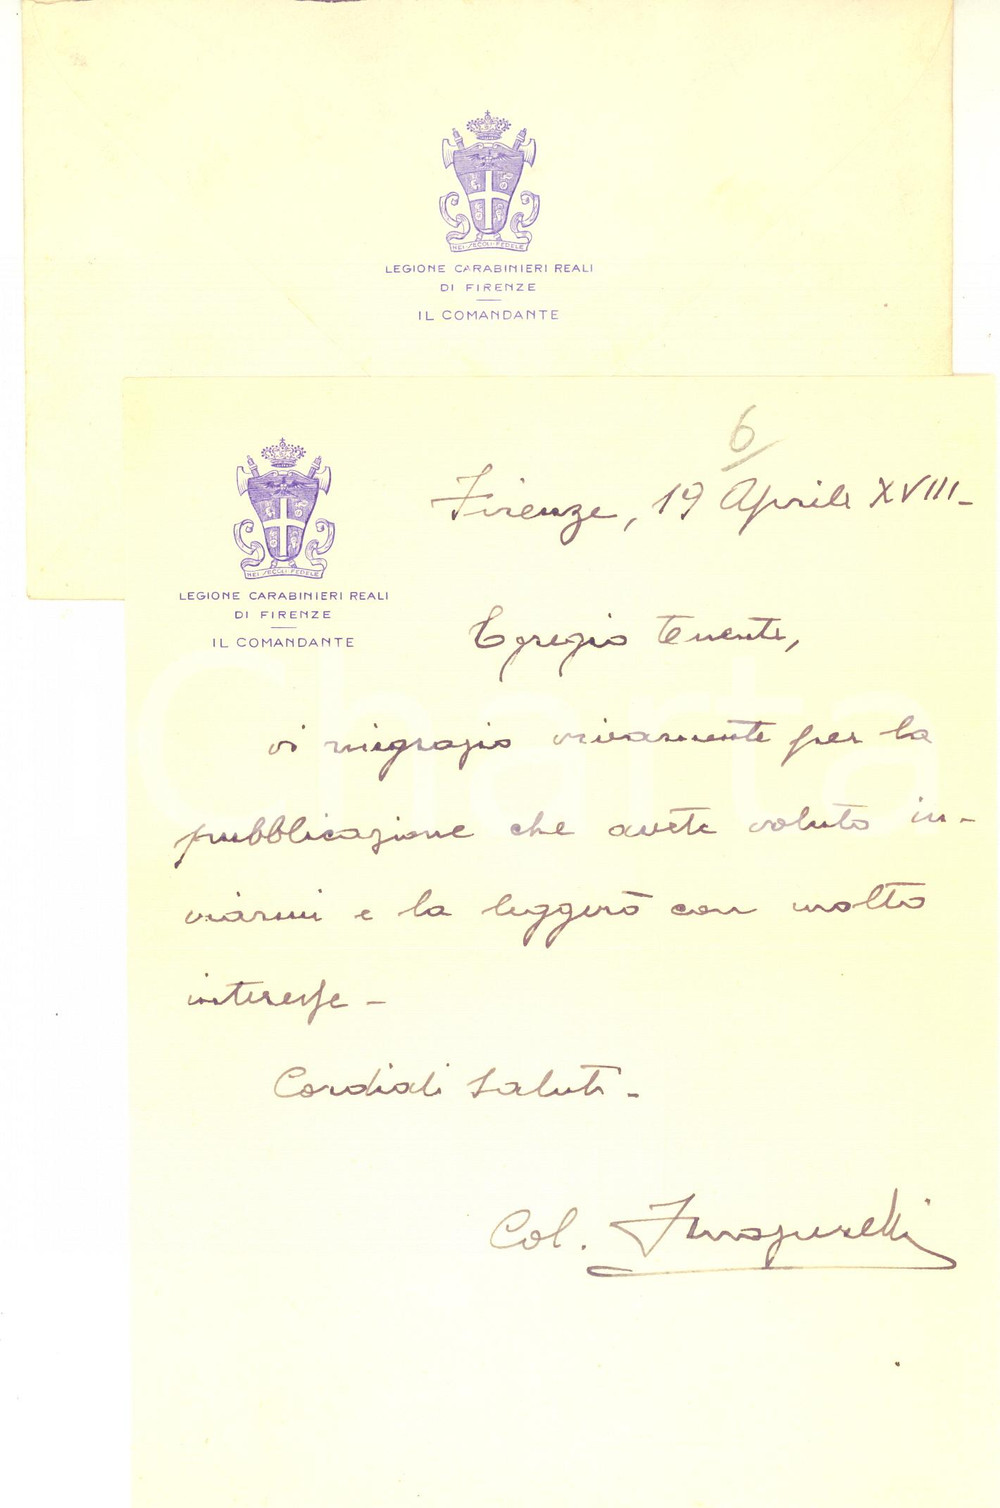 NEI SECOLI FEDELE
LEGIONE CARABINIERI REALI
DI FIRENZE
IL COMANDANTE
6
NEI SECOLI FEDELE
LEGIONE CARABINIERI REALI
DI FIRENZE
IL COMANDANTE
Firenze, 19 Aprile XVIII -
Egregio Tenente,
vi ringrazio vivamente per la
pubblicazione che avete voluto in-
viarmi e la leggerò con molto
interesse -
Cordiali saluti -
Col.
Charta